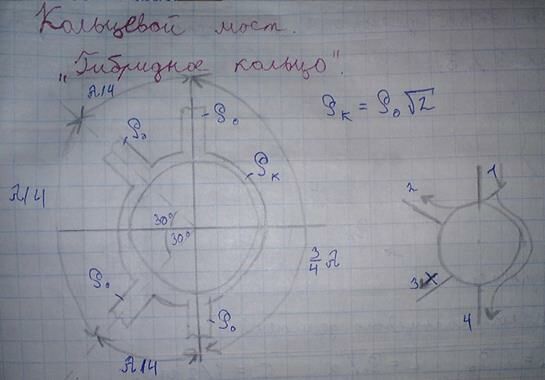 Кольцевой мост.
„Гибридное кольцо".
λ/4
ρ₀
ρ₀
ρк = ρ₀√2
ρк
λ/4
30°
30°
3/4 λ
ρ₀
ρ₀
λ/4
1
2
3
4